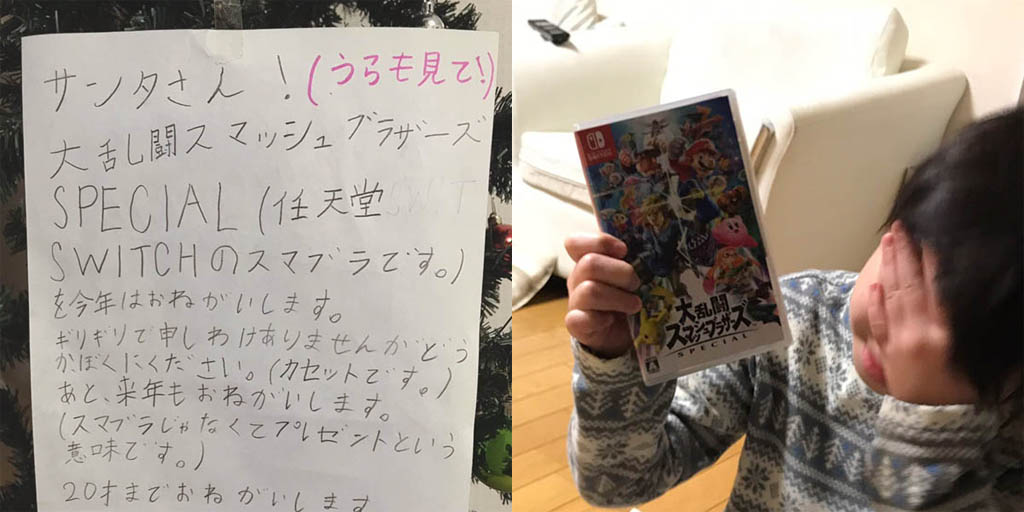 サンタさん！(うらも見て!)
大乱闘スマッシュブラザーズ
SPECIAL (任天堂
SWITCHのスマブラです。)
を今年はおねがいします。
ギリギリで申しわけありませんがどう
かぼくにください。(カセットです。)
あと、来年もおねがいします。
(スマブラじゃなくてプレゼントという
意味です。)
20才までおねがいします
大乱闘
スマッシュブラザーズ
SPECIAL